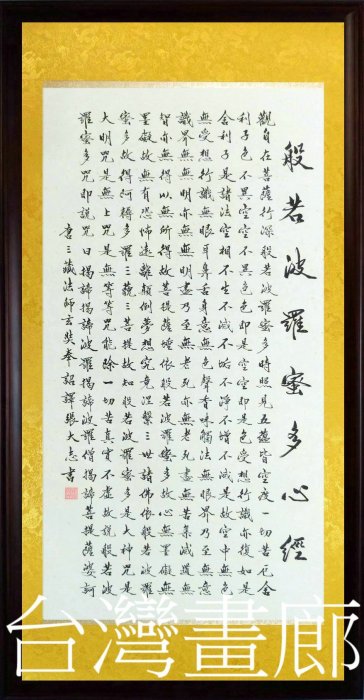 般若波羅蜜多心經
觀自在菩薩行深般若波羅蜜多時照見五蘊皆空度一切苦厄舍
利子色不異空空不異色色即是空空即是色受想行識亦復如是
舍利子是諸法空相不生不滅不垢不淨不增不減是故空中無色
無受想行識無眼耳鼻舌身意無色聲香味觸法無眼界乃至無意
識界無無明亦無無明盡乃至無老死亦無老死盡無苦集滅道無
智亦無得以無所得故菩提薩埵依般若波羅蜜多故心無罣礙無
罣礙故無有恐怖遠離顛倒夢想究竟涅槃三世諸佛依般若波羅
蜜多故得阿耨多羅三藐三菩提故知般若波羅蜜多是大神咒是
大明咒是無上咒是無等等咒能除一切苦真實不虛故說般若波
羅蜜多咒即說咒曰揭諦揭諦波羅揭諦波羅僧揭諦菩提薩婆訶
唐三藏法師玄奘奉詔譯張大志書
台灣畫廊